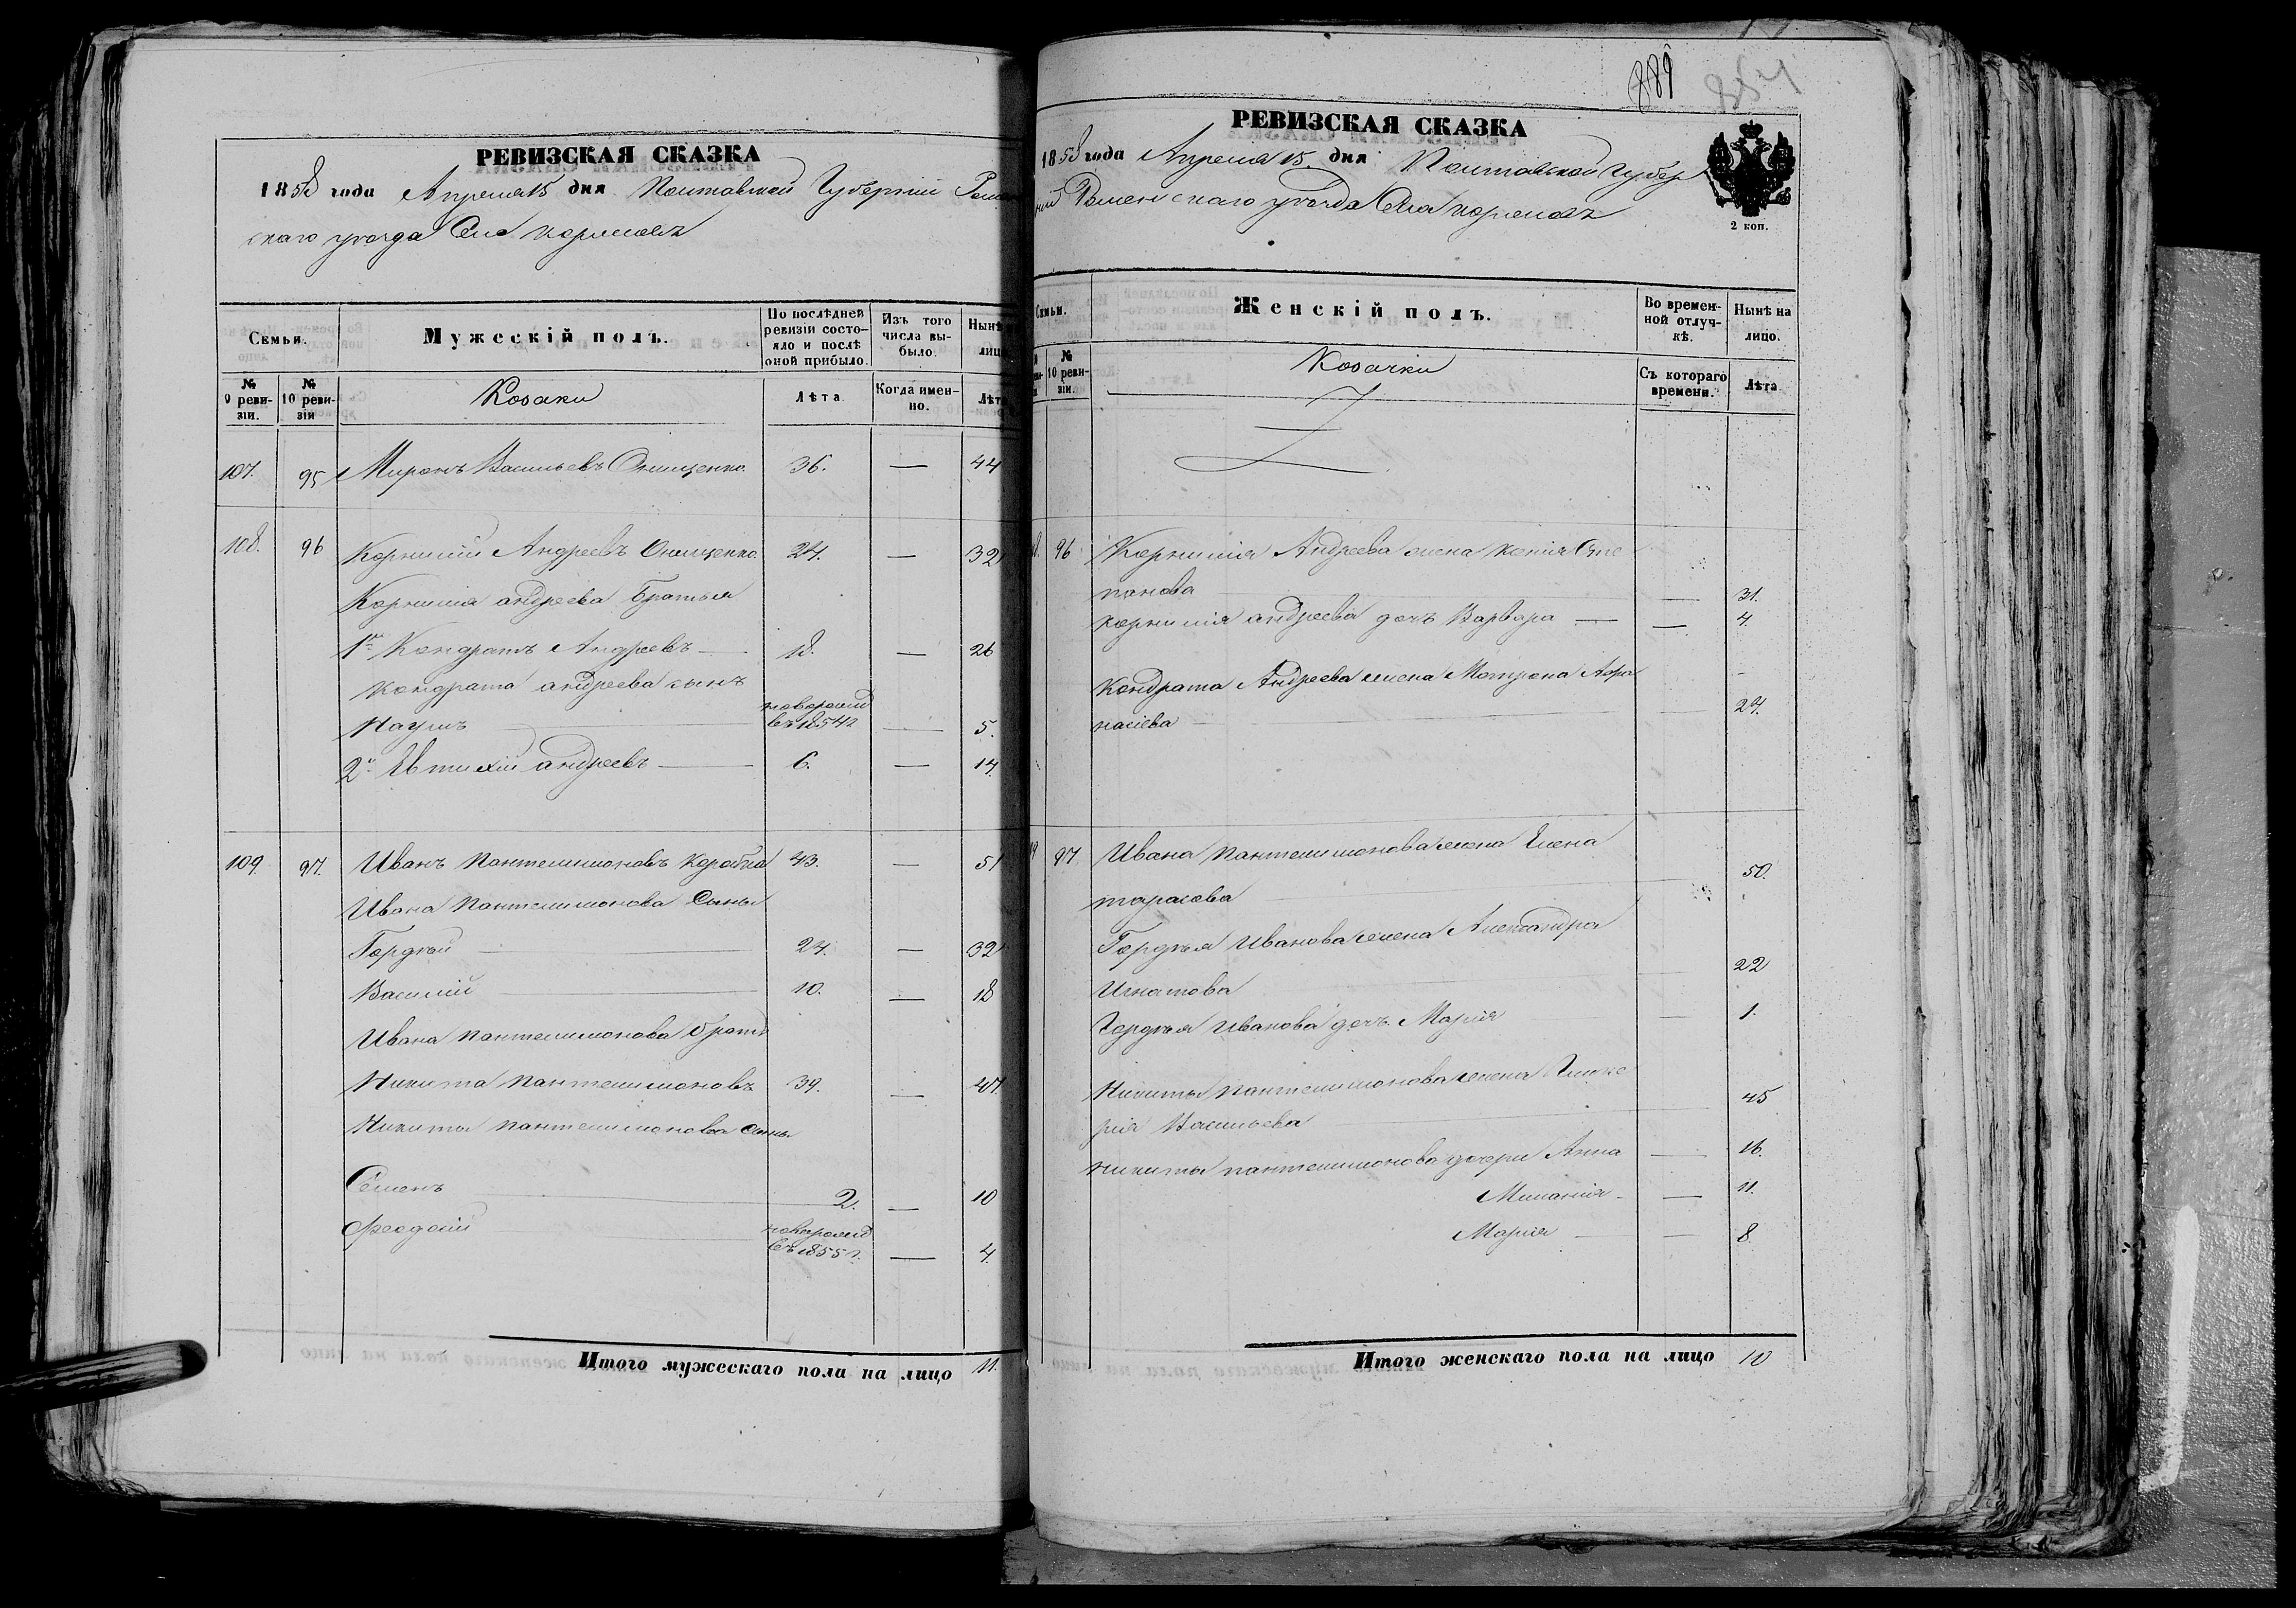 РЕВИЗСКАЯ СКАЗКА
1858 года Апреля 15 дня Полтавской Губернии Ромен
скаго уѣзда Села
Семьи.
Мужескій полъ.
По послѣдней ревизіи состояло и послѣ оной прибыло.
Изъ того числа выбыло.
Нынѣ
лицо
№ 9 ревизіи.
№ 10 ревизіи
Козаки
Лѣта
Когда именно.
Лѣта
107. 95 Миронъ Васильевъ Онищенко 36. — 44
108. 96 Корнилій Андреевъ Онищенко 24. — 32
Корнилія андреева братья
1й Кондратъ Андреевъ — 18. — 26
Кондрата андреева сынъ
Наумъ новорожд въ 1854 г — 5.
2й Евтихій андреевъ — 6. — 14.
109. 97. Иванъ Пантелимоновъ Коробка 43. — 51
Ивана Пантелимонова Сыны
Гордѣй — 24. — 32
Василій — 10. — 18
Ивана Пантелимонова братъ
Никита Пантелимоновъ 39. — 47.
Никиты Пантелимонова Сыны
Семенъ — 2. — 10
Феодосій новорожд въ 1855 г. — 4.
Итого мужескаго пола на лицо 11.
889
854
РЕВИЗСКАЯ СКАЗКА
1858 года Апреля 15. дня Полтавской Губер
ніи Роменскаго уѣзда Села
2 коп.
Семьи.
Женскій полъ.
Во временной отлучкѣ.
Нынѣ на лицо.
№ 10 ревизіи.
Козачки
Съ котораго времени.
Лѣта
96 Корнилія Андреева жена Ксенія Сте
панова — 31.
Корнилія андреева дочь Варвара — — 4.
Кондрата Андреева жена Мотрона Афа
насіева — 24.
97 Ивана Пантелимонова жена Елена
тарасова — 50.
Гордѣя Иванова жена Александра
Игнатова — 22
Гордѣя Иванова дочь Марія — 1.
Никиты Пантелимонова жена Глике
рія Васильева — 45
Никиты пантелимонова дочери Анна — 16.
Миланія — — 11.
Марія — — 8.
Итого женскаго пола на лицо 10